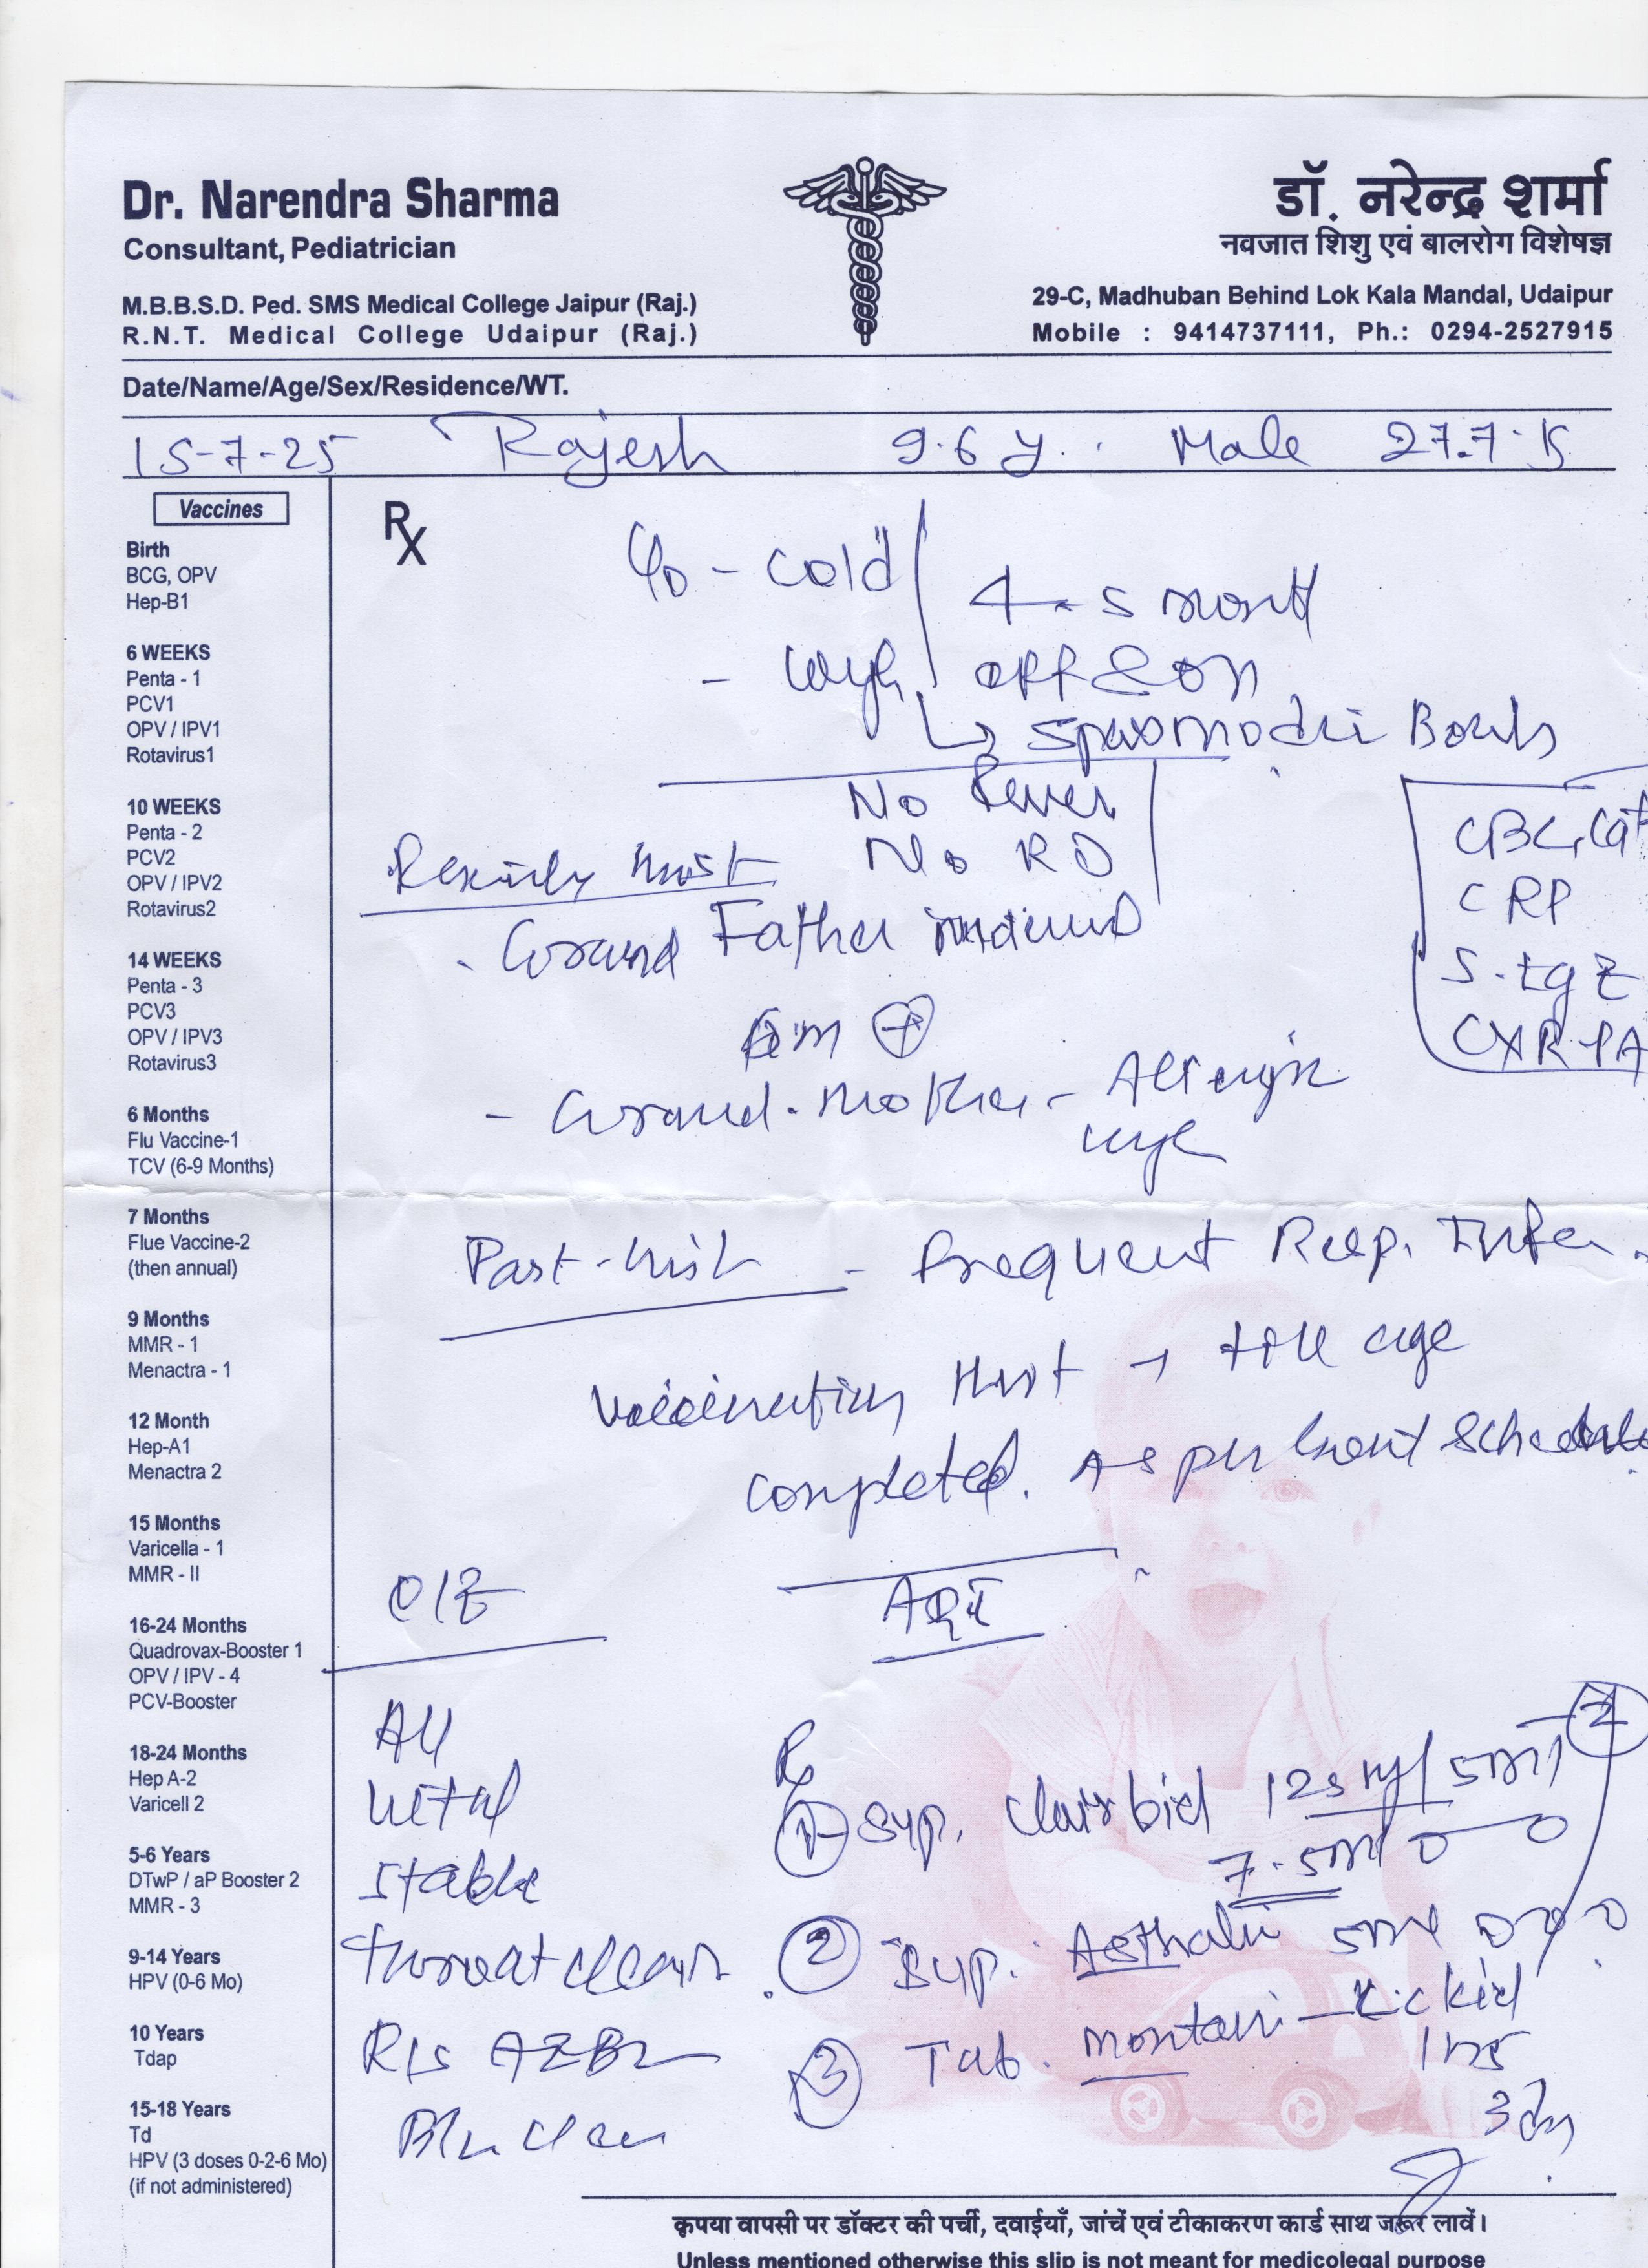 Dr. Narendra Sharma
Consultant, Pediatrician
M.B.B.S.D. Ped. SMS Medical College Jaipur (Raj.)
R.N.T. Medical College Udaipur (Raj.)
डॉ. नरेन्द्र शर्मा
नवजात शिशु एवं बालरोग विशेषज्ञ
29-C, Madhuban Behind Lok Kala Mandal, Udaipur
Mobile : 9414737111, Ph.: 0294-2527915
Date/Name/Age/Sex/Residence/WT.
15-7-25 Rajesh 9.6 y. Male 27.7
Vaccines
Birth
BCG, OPV
Hep-B1
6 WEEKS
Penta - 1
PCV1
OPV / IPV1
Rotavirus1
10 WEEKS
Penta - 2
PCV2
OPV / IPV2
Rotavirus2
14 WEEKS
Penta - 3
PCV3
OPV / IPV3
Rotavirus3
6 Months
Flu Vaccine-1
TCV (6-9 Months)
7 Months
Flue Vaccine-2
(then annual)
9 Months
MMR - 1
Menactra - 1
12 Month
Hep-A1
Menactra 2
15 Months
Varicella - 1
MMR - II
16-24 Months
Quadrovax-Booster 1
OPV / IPV - 4
PCV-Booster
18-24 Months
Hep A-2
Varicell 2
5-6 Years
DTwP / aP Booster 2
MMR - 3
9-14 Years
HPV (0-6 Mo)
10 Years
Tdap
15-18 Years
Td
HPV (3 doses 0-2-6 Mo)
(if not administered)
Rx
C/o - cold
4-5 month
- cough off & on
spasmodic Bouts
No Fever
No RD
Family hist
- Grand Father
- Grand-mother - Allergic
cough
CBC,
CRP
S. IgE
CXR-PA
Past-hist - frequent Resp. Infec.
Vaccination Hist → till age
completed. As per Govt Schedule
O/E
All
vital
stable
throat clear
R/s AEBE
Rx
① Syp. Clairbid 125 mg/5ml
7.5ml
② Syp. Asthalin 5ml
③ Tab. Montair-LC kid
1 HS
कृपया वापसी पर डॉक्टर की पर्ची, दवाईयाँ, जांचें एवं टीकाकरण कार्ड साथ जरूर लावें।
Unless mentioned otherwise this slip is not meant for medicolegal purpose